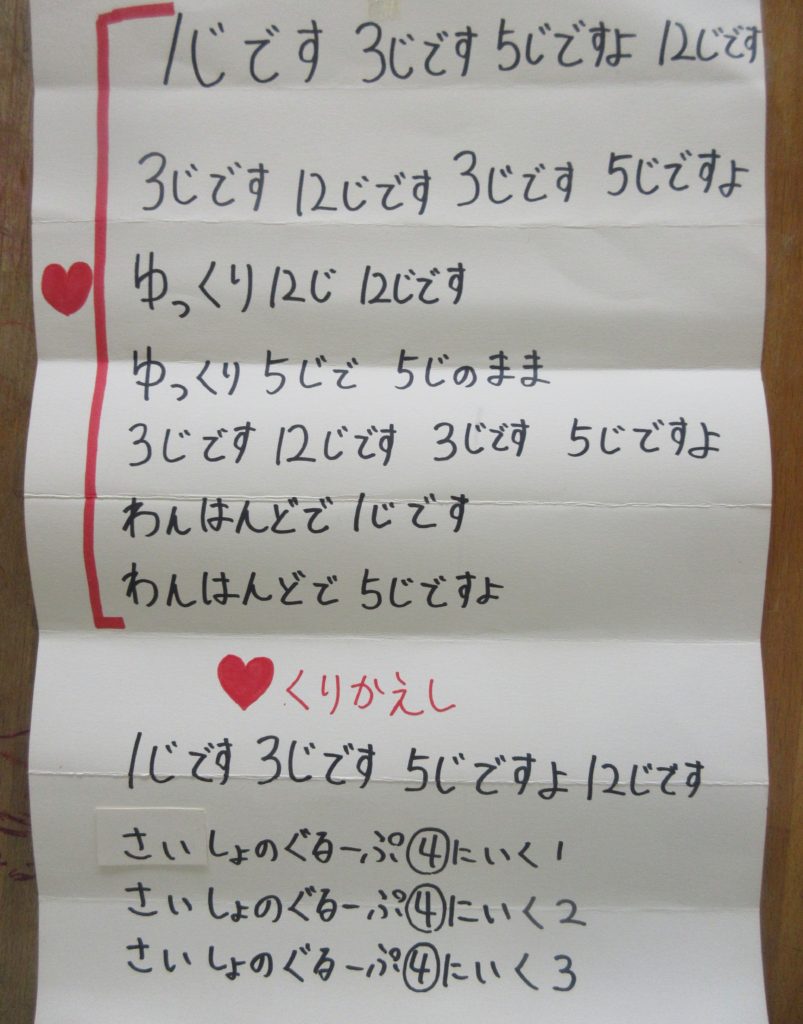 1じです 3じです 5じですよ 12じです
3じです 12じです 3じです 5じですよ
ゆっくり12じ 12じです
ゆっくり 5じで 5じのまま
3じです 12じです 3じです 5じですよ
わんはんどで 1じです
わんはんどで 5じですよ
♥くりかえし
1じです 3じです 5じですよ 12じです
さいしょのぐるーぷ④にいく 1
さいしょのぐるーぷ④にいく 2
さいしょのぐるーぷ④にいく 3